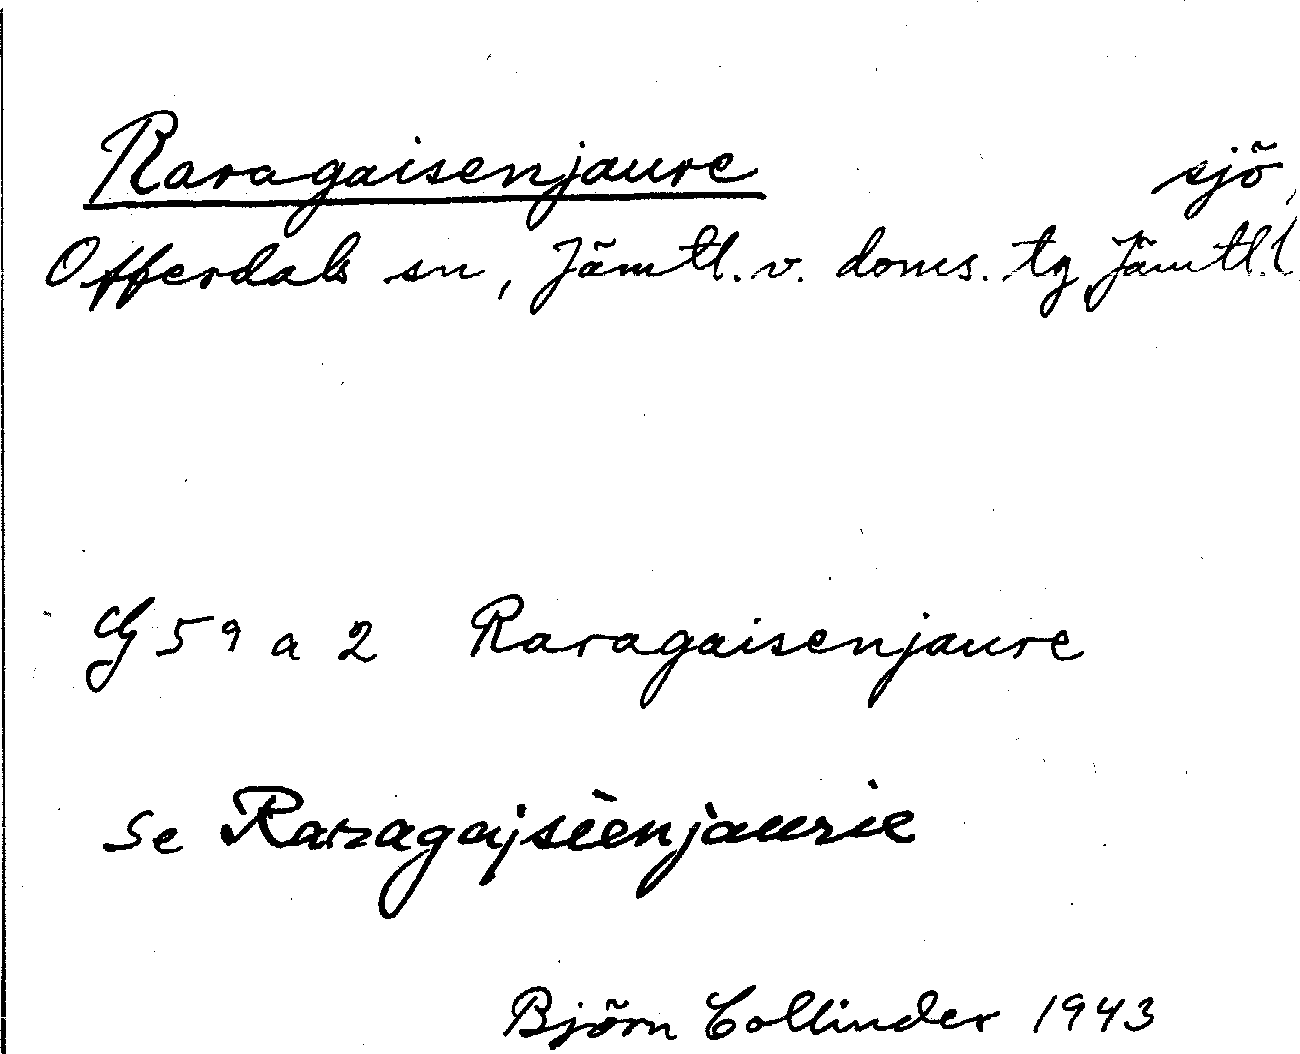 Raragaisenjaure sjö,
Offerdals sn, Jämtl. v. doms. tg, Jämtl. l
G 59 a 2 Raragaisenjaure
se Raragajsèenjaurie
Björn Collinder 1943